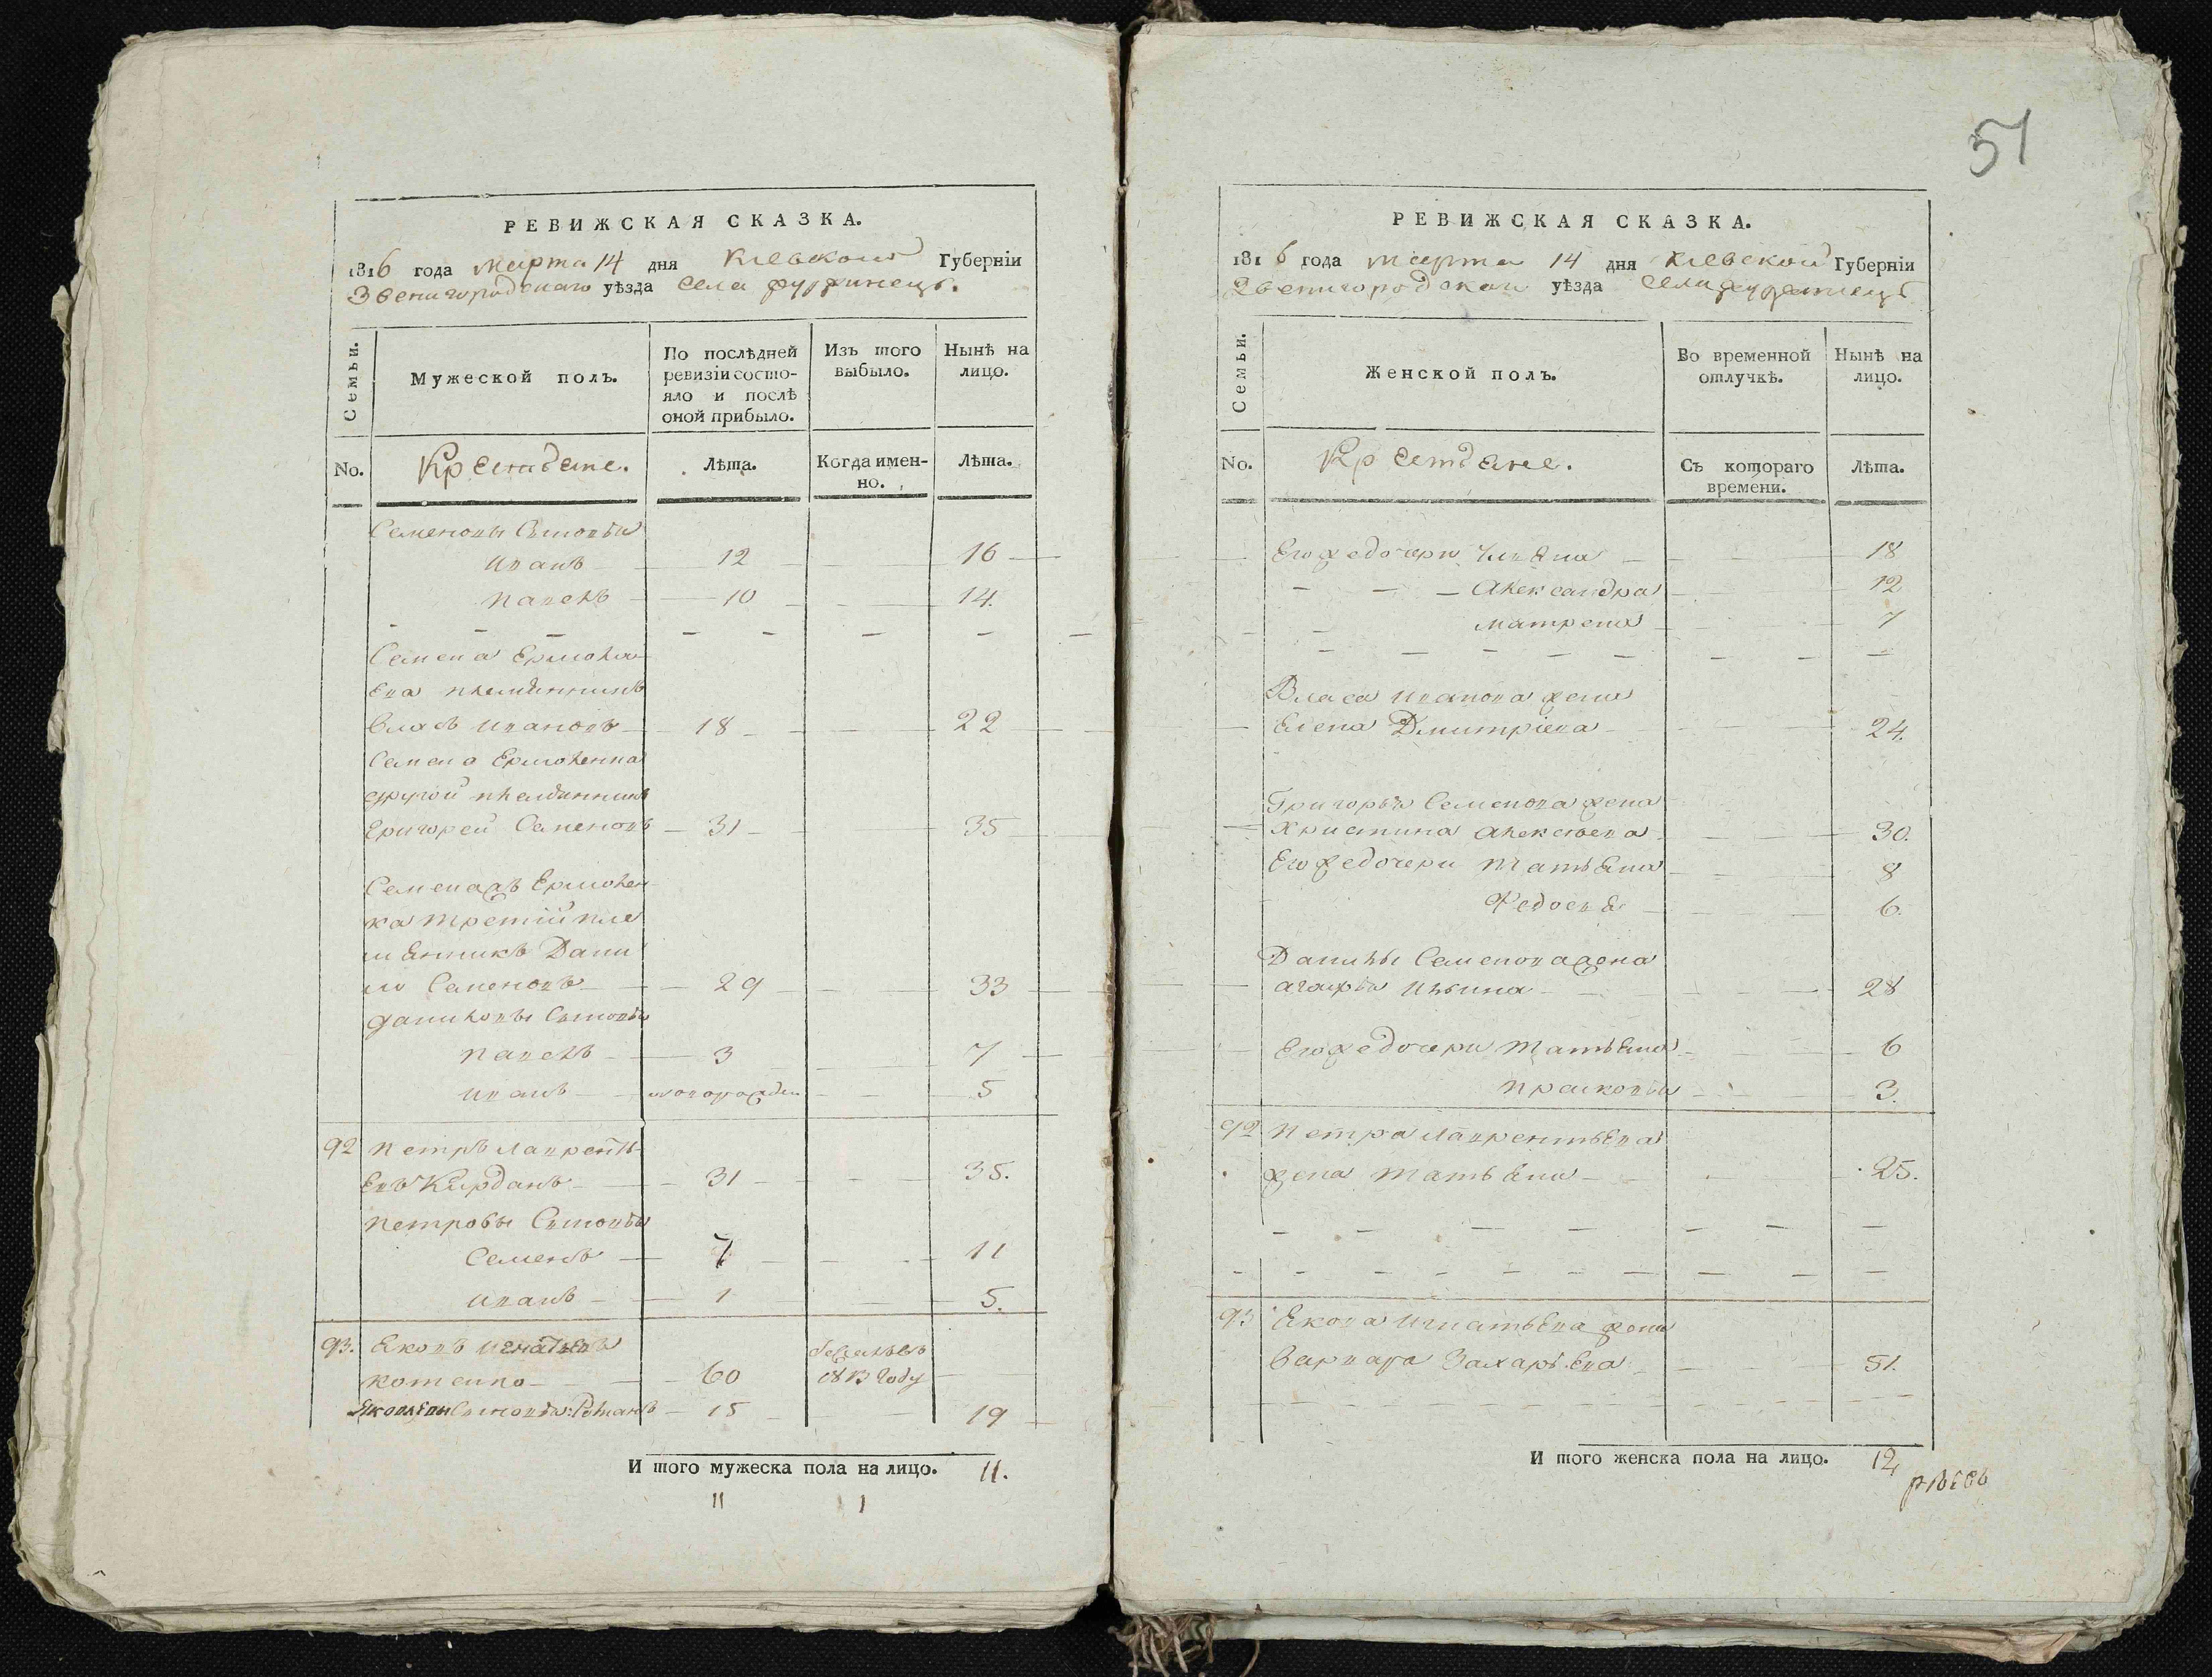 51
РЕВИЖСКАЯ СКАЗКА.
1816 года марта 14 дня Киевской Губерніи
Звенигородскаго уѣзда села
Семьи.
Мужеской полъ.
По послѣдней ревизіи состо-
яло и послѣ
оной прибыло.
Изъ того
выбыло.
Нынѣ на
лицо.
No.
Крестьяне.
Лѣта.
Когда имен-
но.
Лѣта.
Семеновы Сыновья
Иванъ 12 16
Павелъ 10 14.
Семена Ермола
ева племянникъ
Власъ Ивановъ 18 22
Семена
другой племянникъ
Григорей Семеновъ 31 35
Семена
ка третій пле
мянникъ Дани
ло Семеновъ 29 33
Даниловы Сыновья
Павелъ 3 7
Иванъ новорожден 5
92 Петръ Лаврентьевъ
Кирданъ 31 35.
Петровы Сыновья
Семенъ 7 11
Иванъ 1 5.
93. Яковъ Игнатьевъ
60 1813 году
Сыновья: Романъ 15 19
И того мужеска пола на лицо. 11.
11 1
РЕВИЖСКАЯ СКАЗКА.
1816 года марта 14 дня Киевской Губерніи
Звенигородскаго уѣзда села
Семьи.
Женской полъ.
Во временной
отлучкѣ.
Нынѣ на
лицо.
No.
Крестьяне.
Съ котораго
времени.
Лѣта.
Его же дочери Ульяна 18
Александра 12
Матрена 7
Власа Иванова жена
Елена Дмитріева 24.
Григорья Семенова жена
Христина Алексѣева 30.
Его же дочери Татьяна 8
Федосья 6.
Данилы Семенова жена
Агафья Ильина 28
Его же дочери Татьяна 6
Прасковья 3.
92 Петра Лаврентьева
жена Татьяна 25.
93 Якова Игнатьева жена
Варвара Захарьева 51.
И того женска пола на лицо. 12